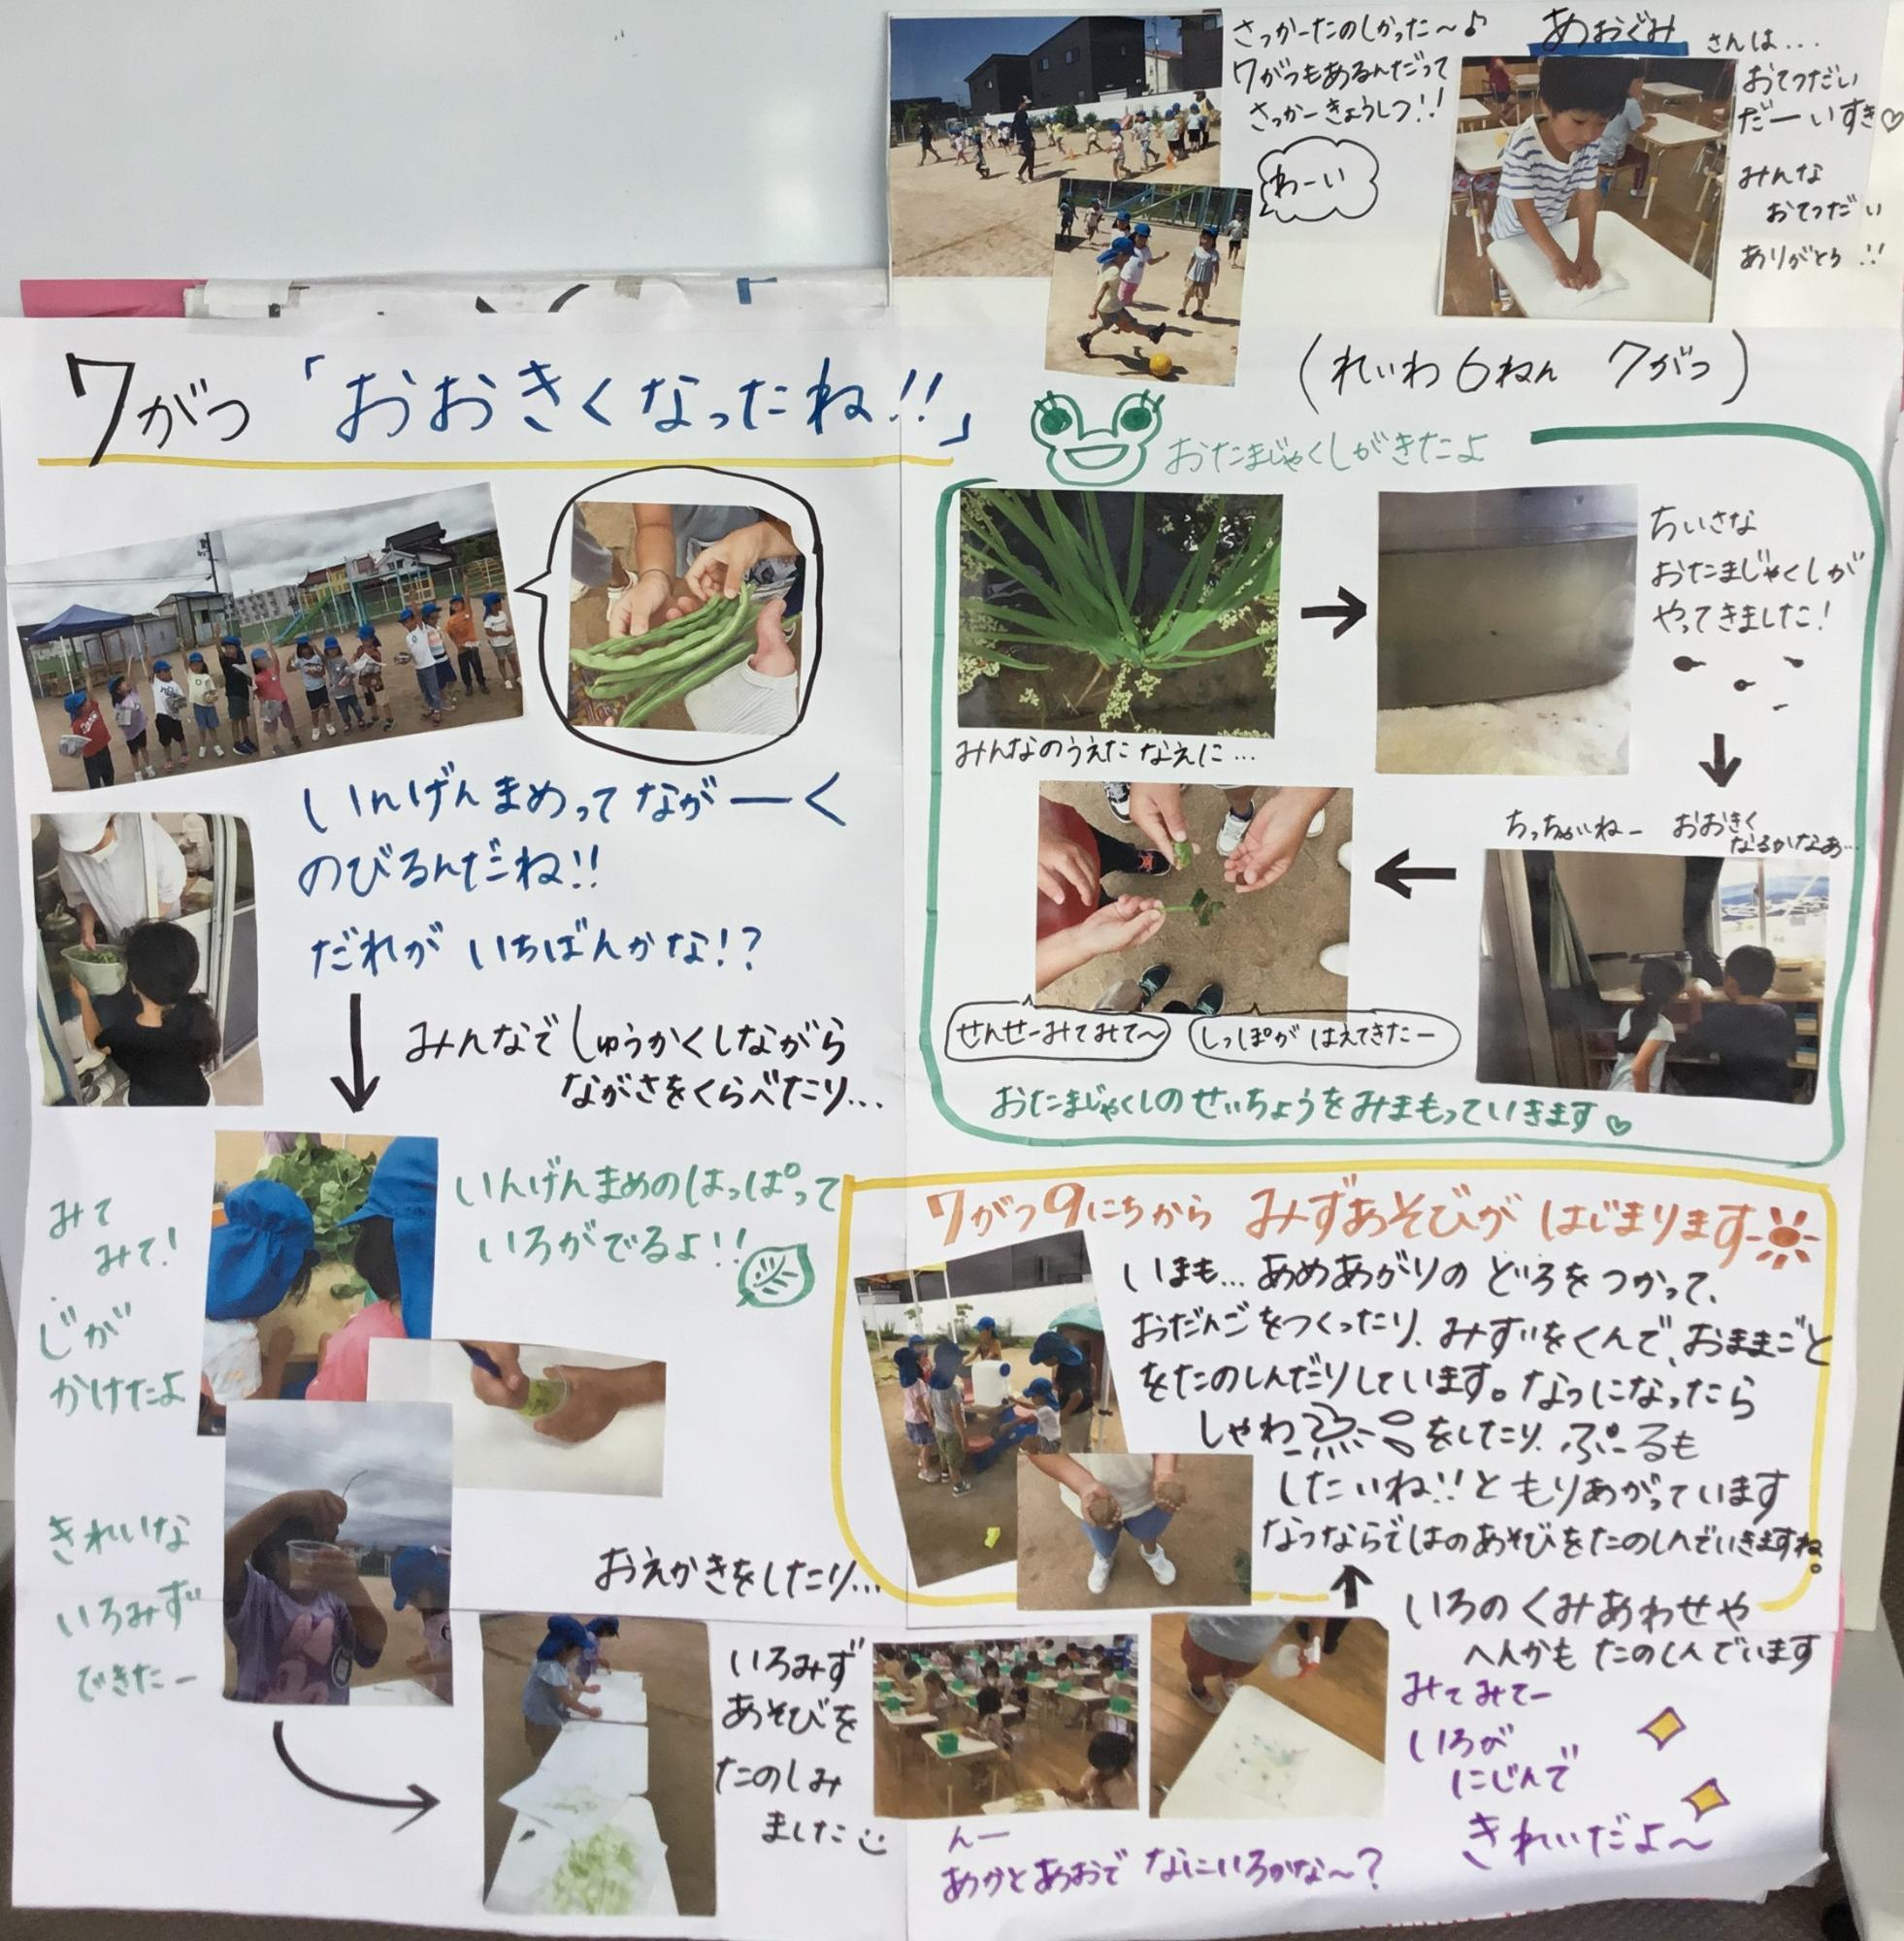 さっかーたのしかった〜♪
7がつもあるんだって
さっかーきょうしつ!!
わーい
あおぐみ さんは...
おてつだい
だーいすき♡
みんな
おてつだい
ありがとう!!
7がつ「おおきくなったね!!」
(れいわ6ねん 7がつ)
いんげんまめってながーく
のびるんだね!!
だれが いちばんかな!?
みんなでしゅうかくしながら
ながさをくらべたり...
いんげんまめのはっぱって
いろがでるよ!!
みて
みて!
じが
かけたよ
きれいな
いろみず
できたー
おえかきをしたり...
いろみず
あそびを
たのしみ
ました
おたまじゃくしがきたよ
みんなのうえた なえに...
ちいさな
おたまじゃくしが
やってきました!
ちっちゃいねー おおきく
なるかなあ...
せんせーみてみて〜
しっぽが はえてきたー
おたまじゃくしのせいちょうをみまもっていきます♡
7がつ9にちから みずあそびが はじまります
いまも...あめあがりの どろをつかって、
おだんごをつくったり、みずをくんで、おままごと
をたのしんだりしています。なつになったら
しゃわーをしたり、ぷーるも
したいね!!ともりあがっています
なつならではのあそびをたのしんでいきますね。
いろのくみあわせや
へんかも たのしんでいます
みてみてー
いろが
にじんで
きれいだよ〜
んー
あかとあおで なにいろかな〜?